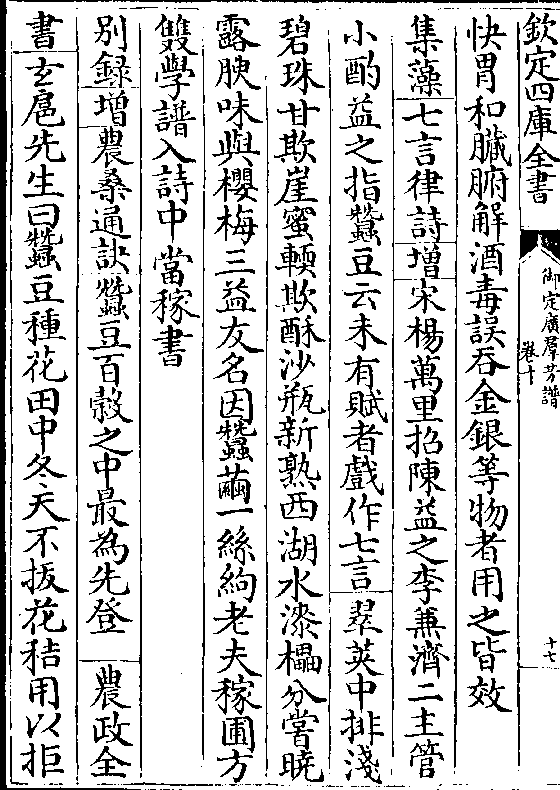 欽定四庫全書
御定廣羣芳譜
卷十
十七
快胃和臟腑解酒毒誤吞金銀等物者用之皆效
集藻七言律詩增宋楊萬里招陳益之李兼濟二主管
小酌益之指蠶豆云未有賦者戲作七言翠莢中排淺
碧珠甘欺崖蜜輭欺酥沙瓶新熟西湖水漆櫑分嘗曉
露腴味與櫻梅三益友名因蠶繭一絲絇老夫稼圃方
雙學譜入詩中當稼書
别録增農桑通訣蠶豆百穀之中最為先登　農政全
書玄扈先生曰蠶豆種花田中冬天不拔花秸用以拒